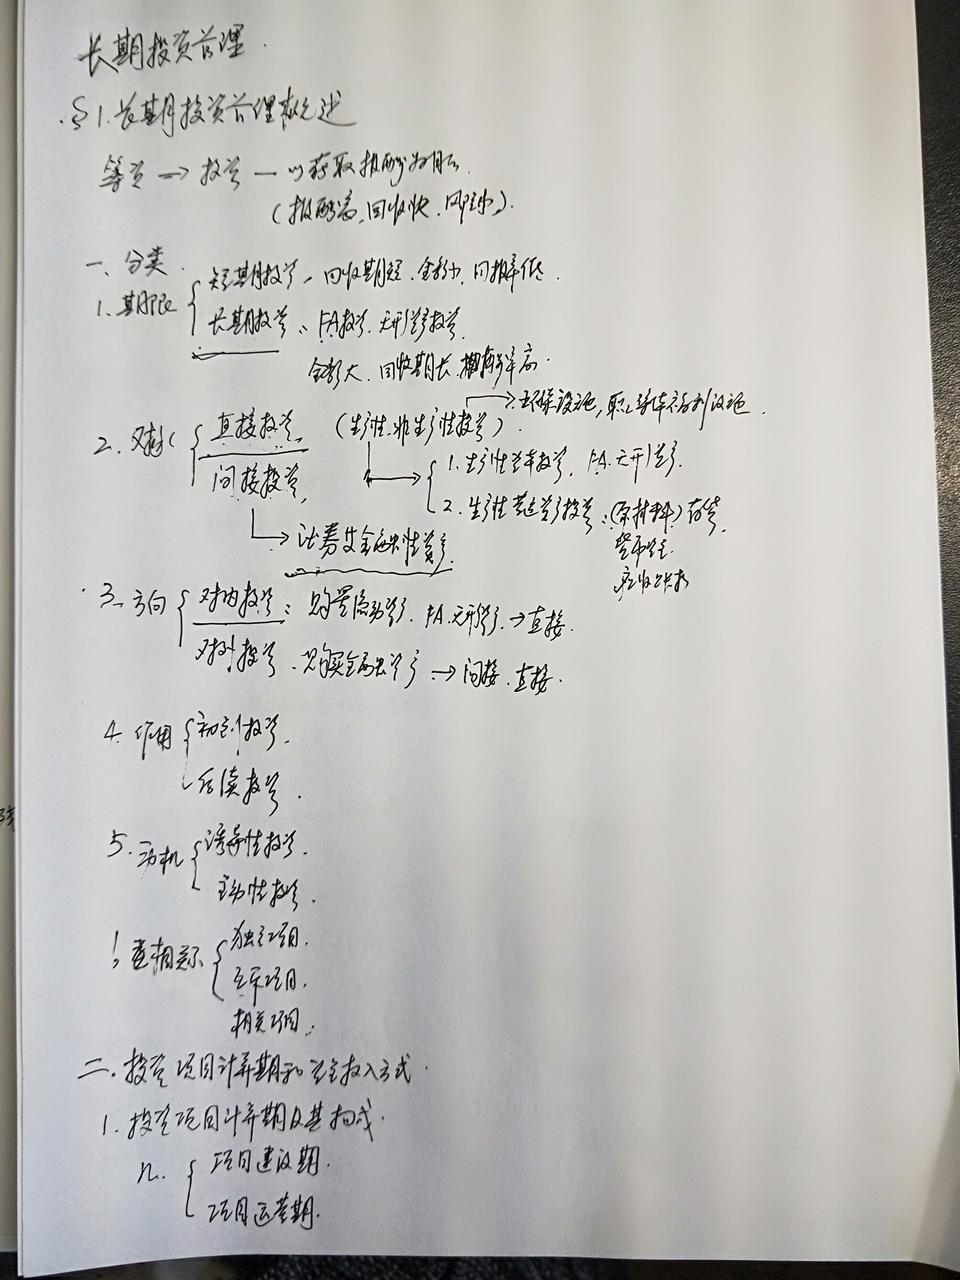 长期投资管理.
§1.长期投资管理概述
筹资→投资—以获取报酬为目的.
(报酬高,回收快,风险小).
一、分类.
1.期限
短期投资—回收期短.金额小,回报率低.
长期投资:FA投资.无形资产投资.
金额大.回收期长.报酬率高.
→环保设施,职工集体福利设施.
2.对象
直接投资.(生产性.非生产性投资).
间接投资.
1.生产性资本投资.FA.无形资产.
2.生产性营运资产投资:(原材料)存货
货币资金.
应收账款
→证券等金融性资产
3.方向
对内投资:购置流动资产.FA.无形资产.→直接.
对外投资.购买金融资产→间接.直接.
4.作用
初创投资.
后续投资.
5.动机
诱导性投资.
主动性投资.
相关
独立项目.
互斥项目.
相关项目.
二.投资项目计算期和资金投入方式.
1.投资项目计算期及其构成.
n.
项目建设期.
项目运营期.